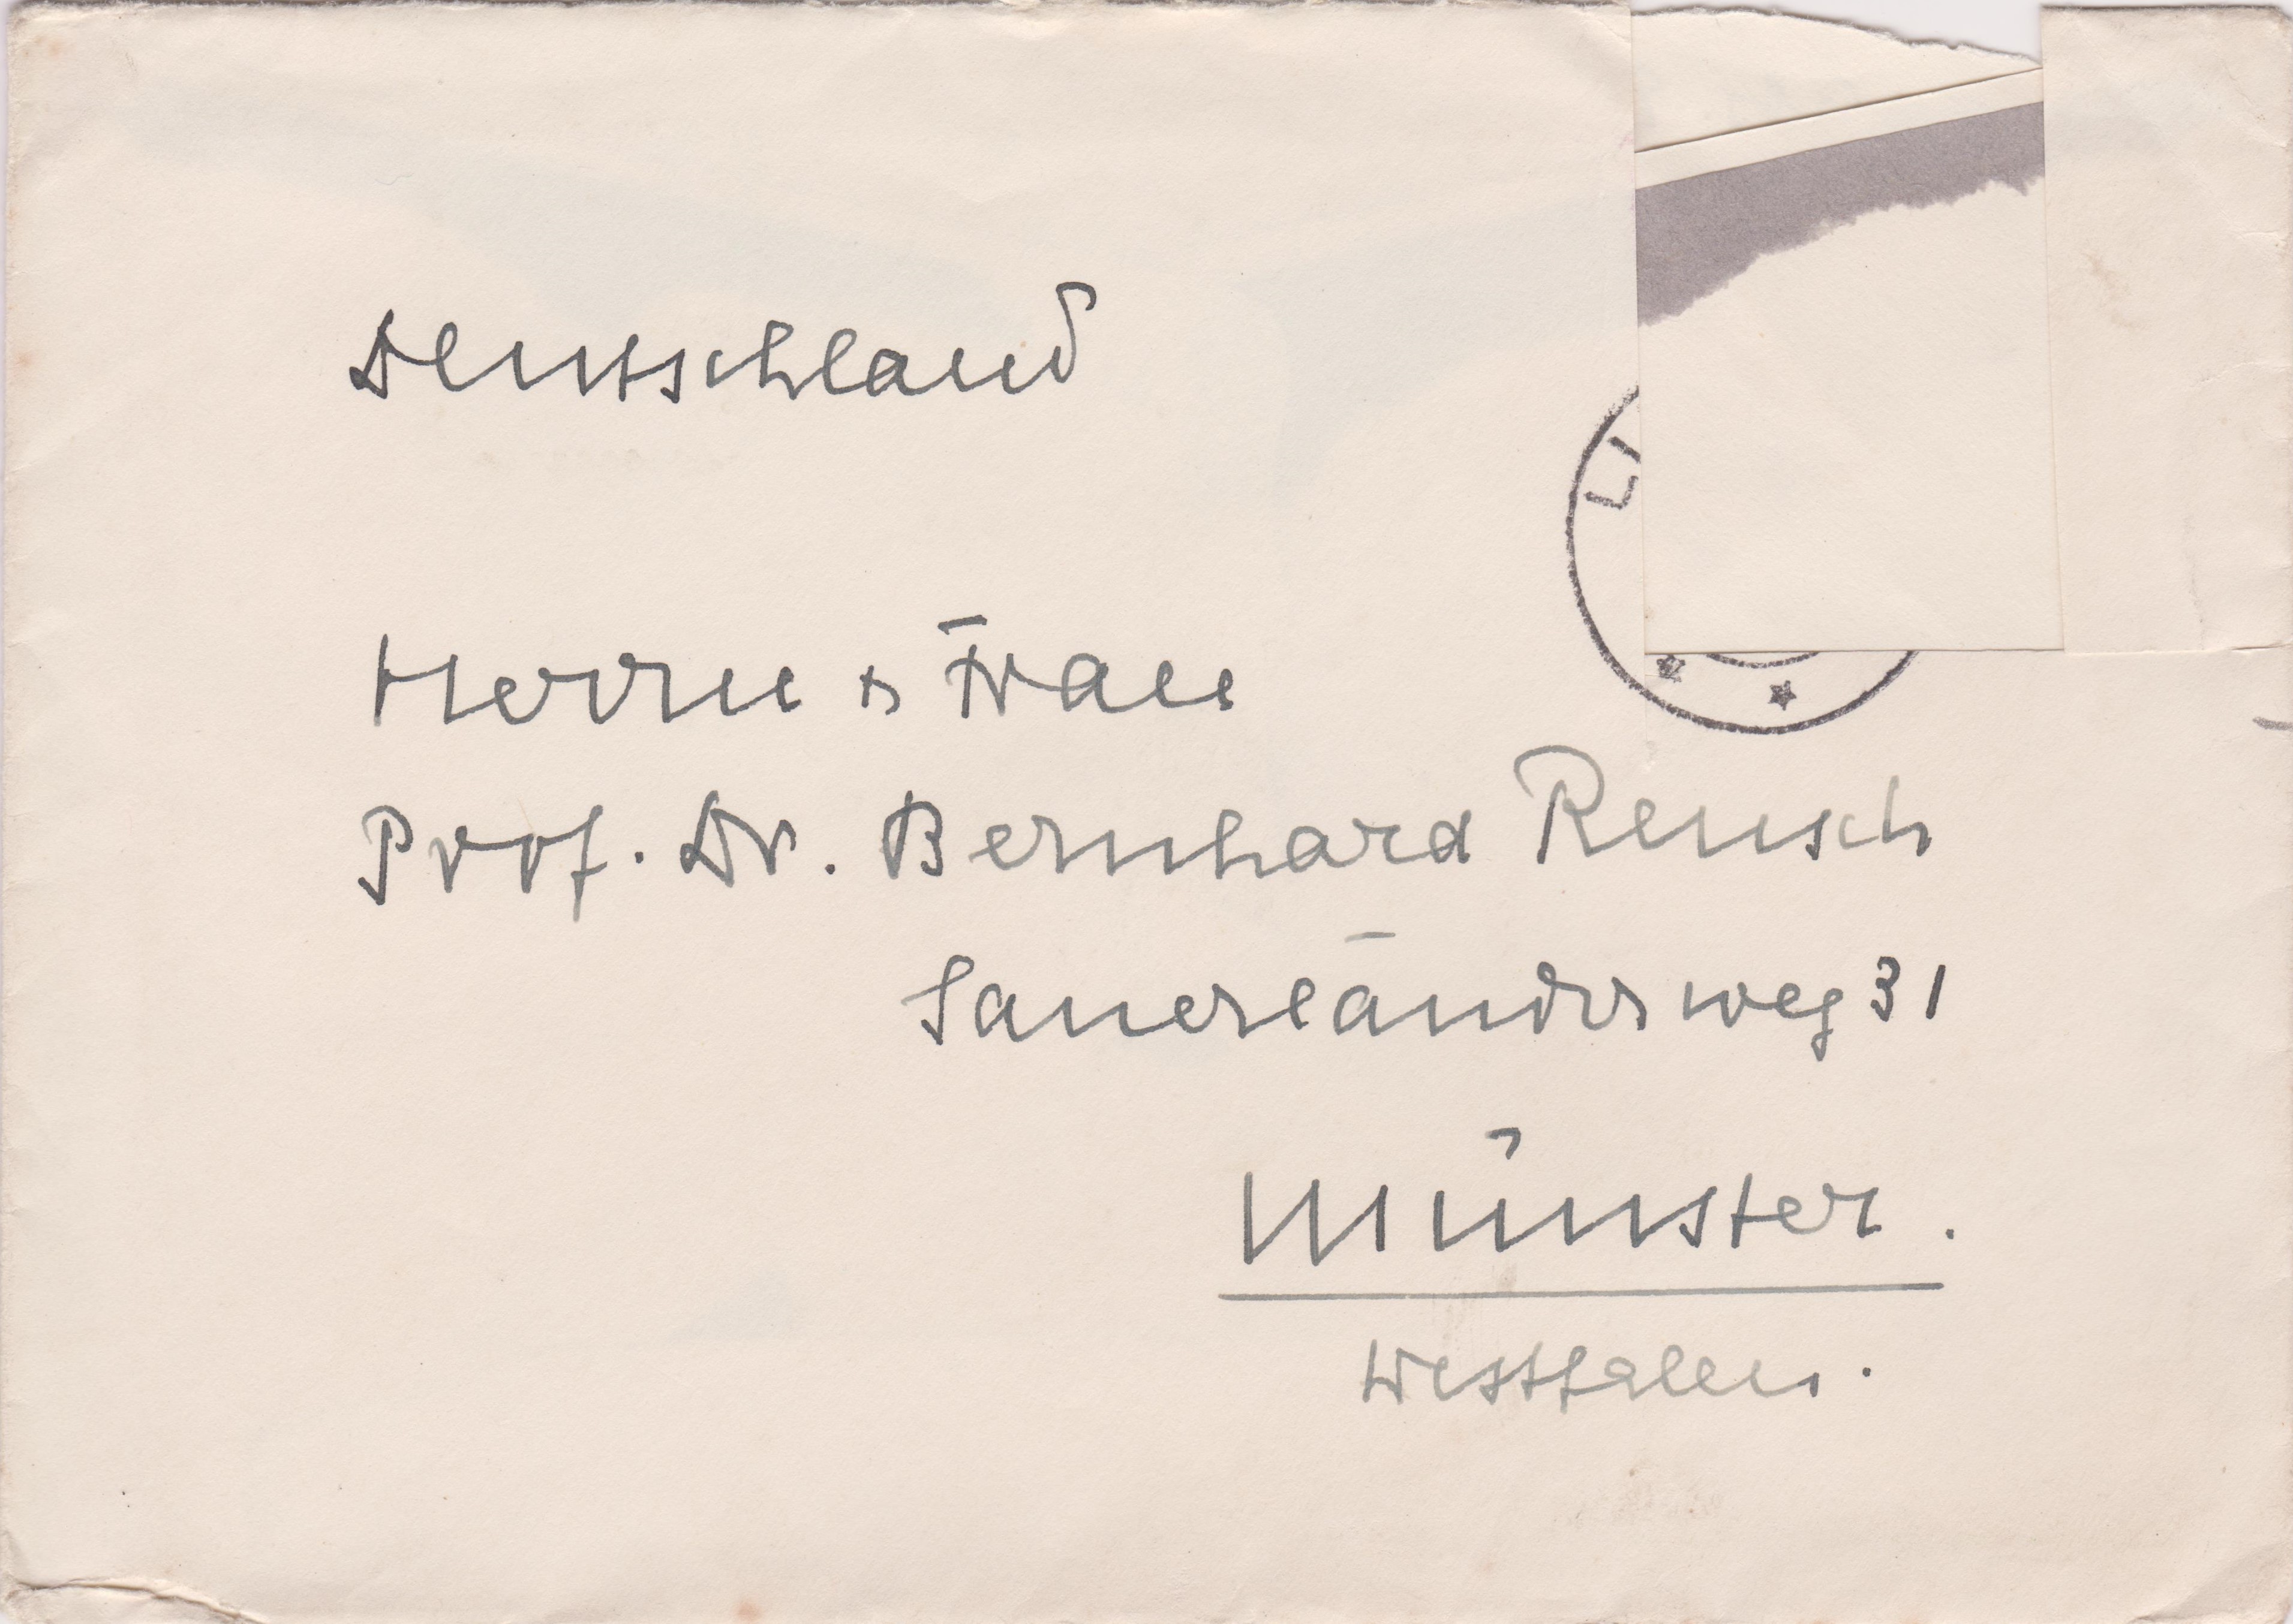 Deutschland
LI
Herrn & Frau
Prof. Dr. Bernhard Rensch
Sauerländerweg 31
Münster.
Westfalen.